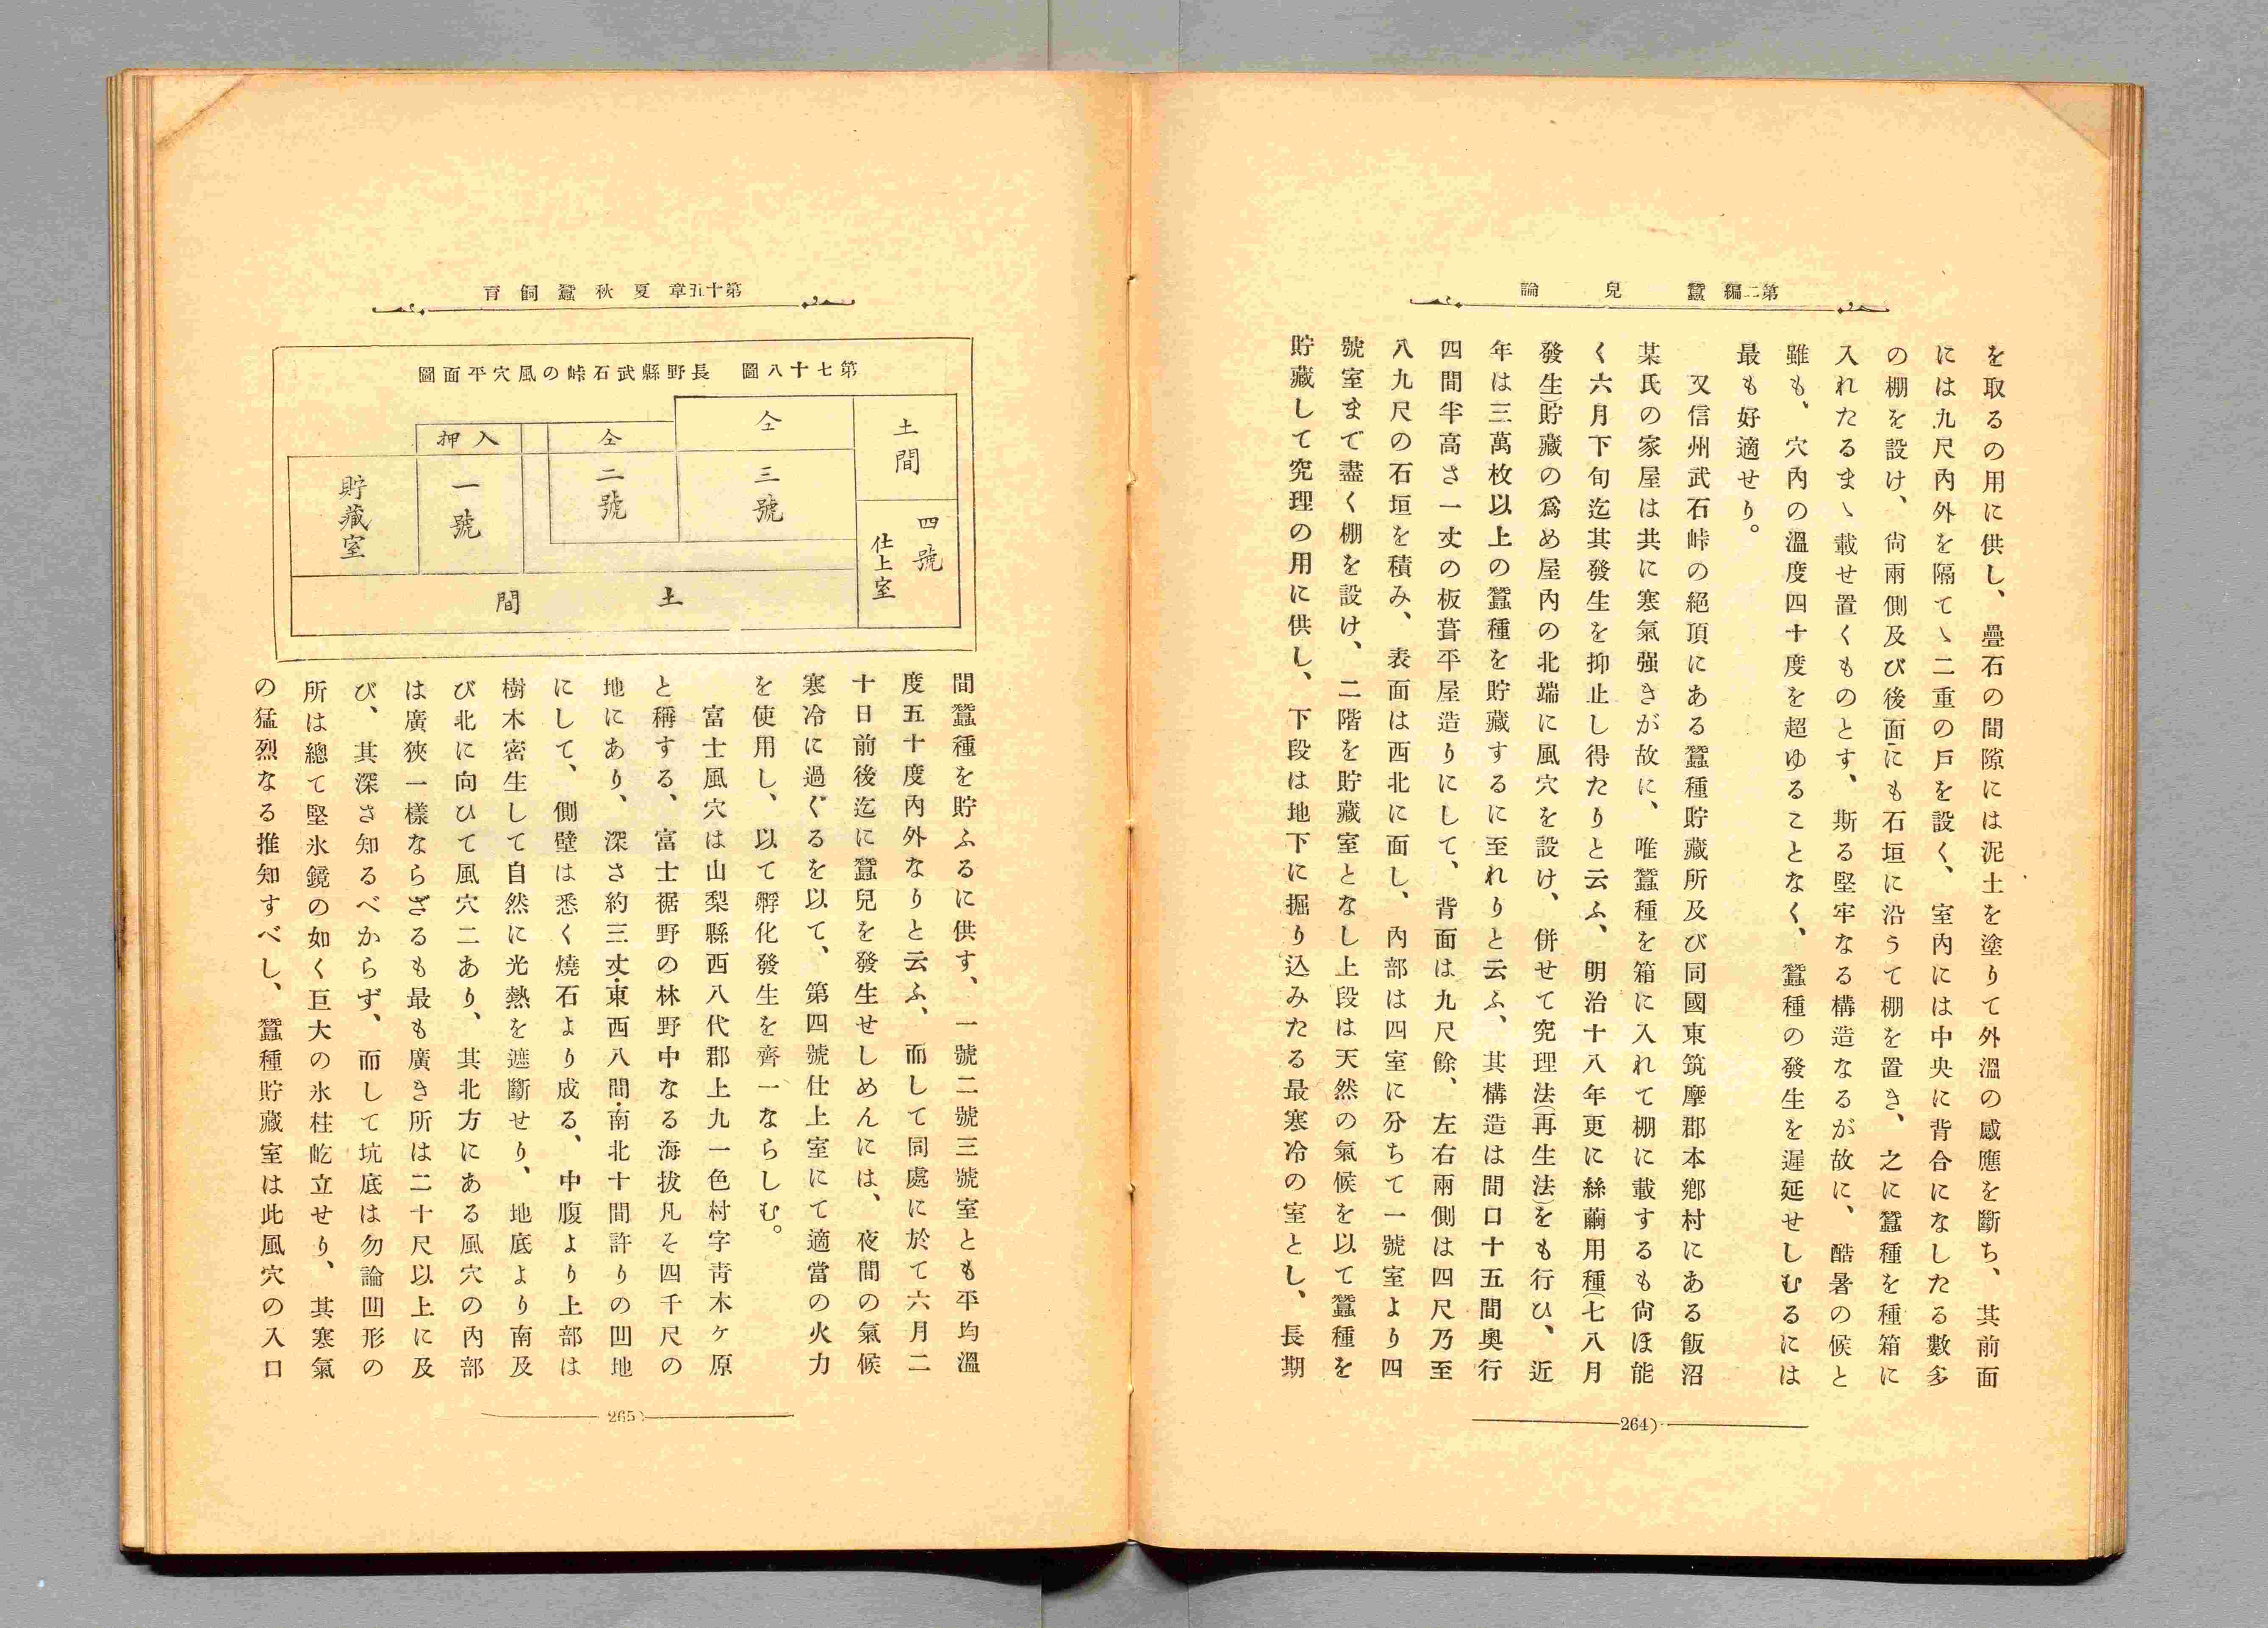 第二編 蠶兒論
を取るの用に供し、疊石の間隙には泥土を塗りて外溫の感應を斷ち、其前面
には九尺內外を隔てゝ二重の戶を設く、室內には中央に背合になしたる數多
の棚を設け、尙兩側及び後面にも石垣に沿うて棚を置き、之に蠶種を種箱に
入れたるまゝ載せ置くものとす、斯る堅牢なる構造なるが故に、酷暑の候と
雖も、穴內の溫度四十度を超ゆることなく、蠶種の發生を遲延せしむるには
最も好適せり。
又信州武石峠の絕頂にある蠶種貯藏所及び同國東筑摩郡本鄕村にある飯沼
某氏の家屋は共に寒氣强きが故に、唯蠶種を箱に入れて棚に載するも尙ほ能
く六月下旬迄其發生を抑止し得たりと云ふ、明治十八年更に絲繭用種(七八月
發生)貯藏の爲め屋內の北端に風穴を設け、併せて究理法(再生法)をも行ひ、近
年は三萬枚以上の蠶種を貯藏するに至れりと云ふ、其構造は間口十五間奧行
四間半高さ一丈の板葺平屋造りにして、背面は九尺餘、左右兩側は四尺乃至
八九尺の石垣を積み、表面は西北に面し、內部は四室に分ちて一號室より四
號室まで盡く棚を設け、二階を貯藏室となし上段は天然の氣候を以て蠶種を
貯藏して究理の用に供し、下段は地下に掘り込みたる最寒冷の室とし、長期
264)
第十五章 夏秋蠶飼育
第七十八圖 長野縣武石峠の風穴平面圖
土間
四號
仕上室
仝
三號
仝
二號
押入
一號
貯藏室
土間
間蠶種を貯ふるに供す、一號二號三號室とも平均溫
度五十度內外なりと云ふ、而して同處に於て六月二
十日前後迄に蠶兒を發生せしめんには、夜間の氣候
寒冷に過ぐるを以て、第四號仕上室にて適當の火力
を使用し、以て孵化發生を齊一ならしむ。
富士風穴は山梨縣西八代郡上九一色村字靑木ヶ原
と稱する、富士裾野の林野中なる海拔凡そ四千尺の
地にあり、深さ約三丈・東西八間・南北十間許りの凹地
にして、側壁は悉く燒石より成る、中腹より上部は
樹木密生して自然に光熱を遮斷せり、地底より南及
び北に向ひて風穴二あり、其北方にある風穴の內部
は廣狹一樣ならざるも最も廣き所は二十尺以上に及
び、其深さ知るべからず、而して坑底は勿論凹形の
所は總て堅氷鏡の如く巨大の氷柱屹立せり、其寒氣
の猛烈なる推知すべし、蠶種貯藏室は此風穴の入口
265)